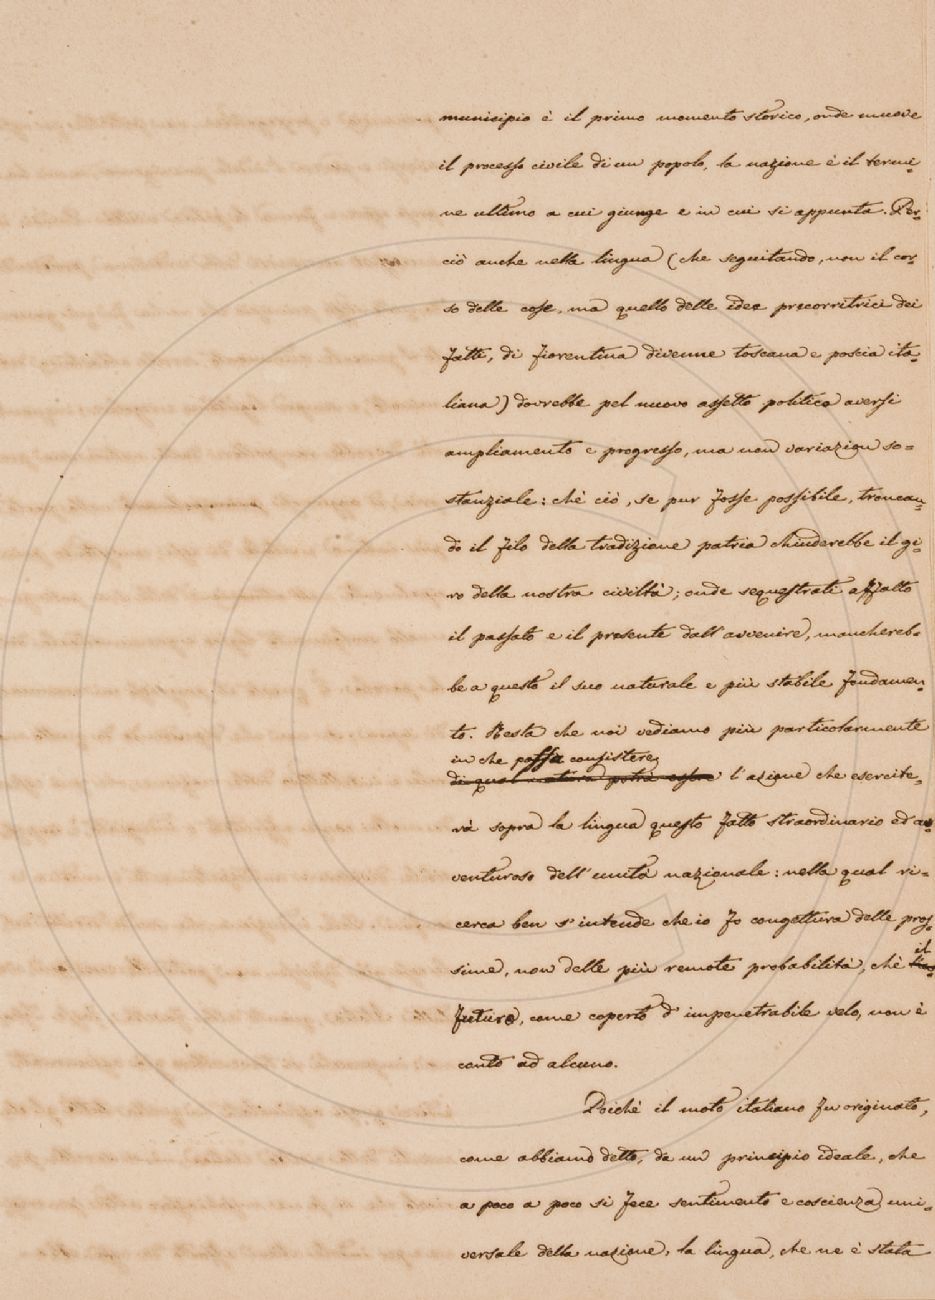 municipio è il primo momento storico, onde muove
il processo civile di un popolo, la nazione è il termi=
ne ultimo a cui giunge e in cui si appunta. Per=
ciò anche nella lingua (che seguitando, non il cor=
so delle cose, ma quello delle idee precorritrici dei
fatti, di fiorentina divenne toscana e poscia ita=
liana) dovrebbe pel nuovo assetto politico aversi
ampliamento e progresso, ma non variazion so=
stanziale: chè ciò, se pur fosse possibile, troncan=
do il filo della tradizione patria chiuderebbe il gi=
ro della nostra civiltà; onde sequestrati affatto
il passato e il presente dall'avvenire, manchereb=
be a questo il suo naturale e più stabile fondamen=
to. Resta che noi vediamo più particolarmente
in che possa consistere
di qual natura potrà essere l'azione che esercite=
rà sopra la lingua questo fatto straordinario ed av=
venturoso dell'unità nazionale: nella qual ri=
cerca ben s'intende che io fo congettura delle pros=
il
sime, non delle più remote probabilità, chè
futuro, come coperto d'impenetrabile velo, non è
conto ad alcuno.
Poichè il moto italiano fu originato,
come abbiamo detto, da un principio ideale, che
a poco a poco si fece sentimento e coscienza uni=
versale della nazione, la lingua, che ne è stata